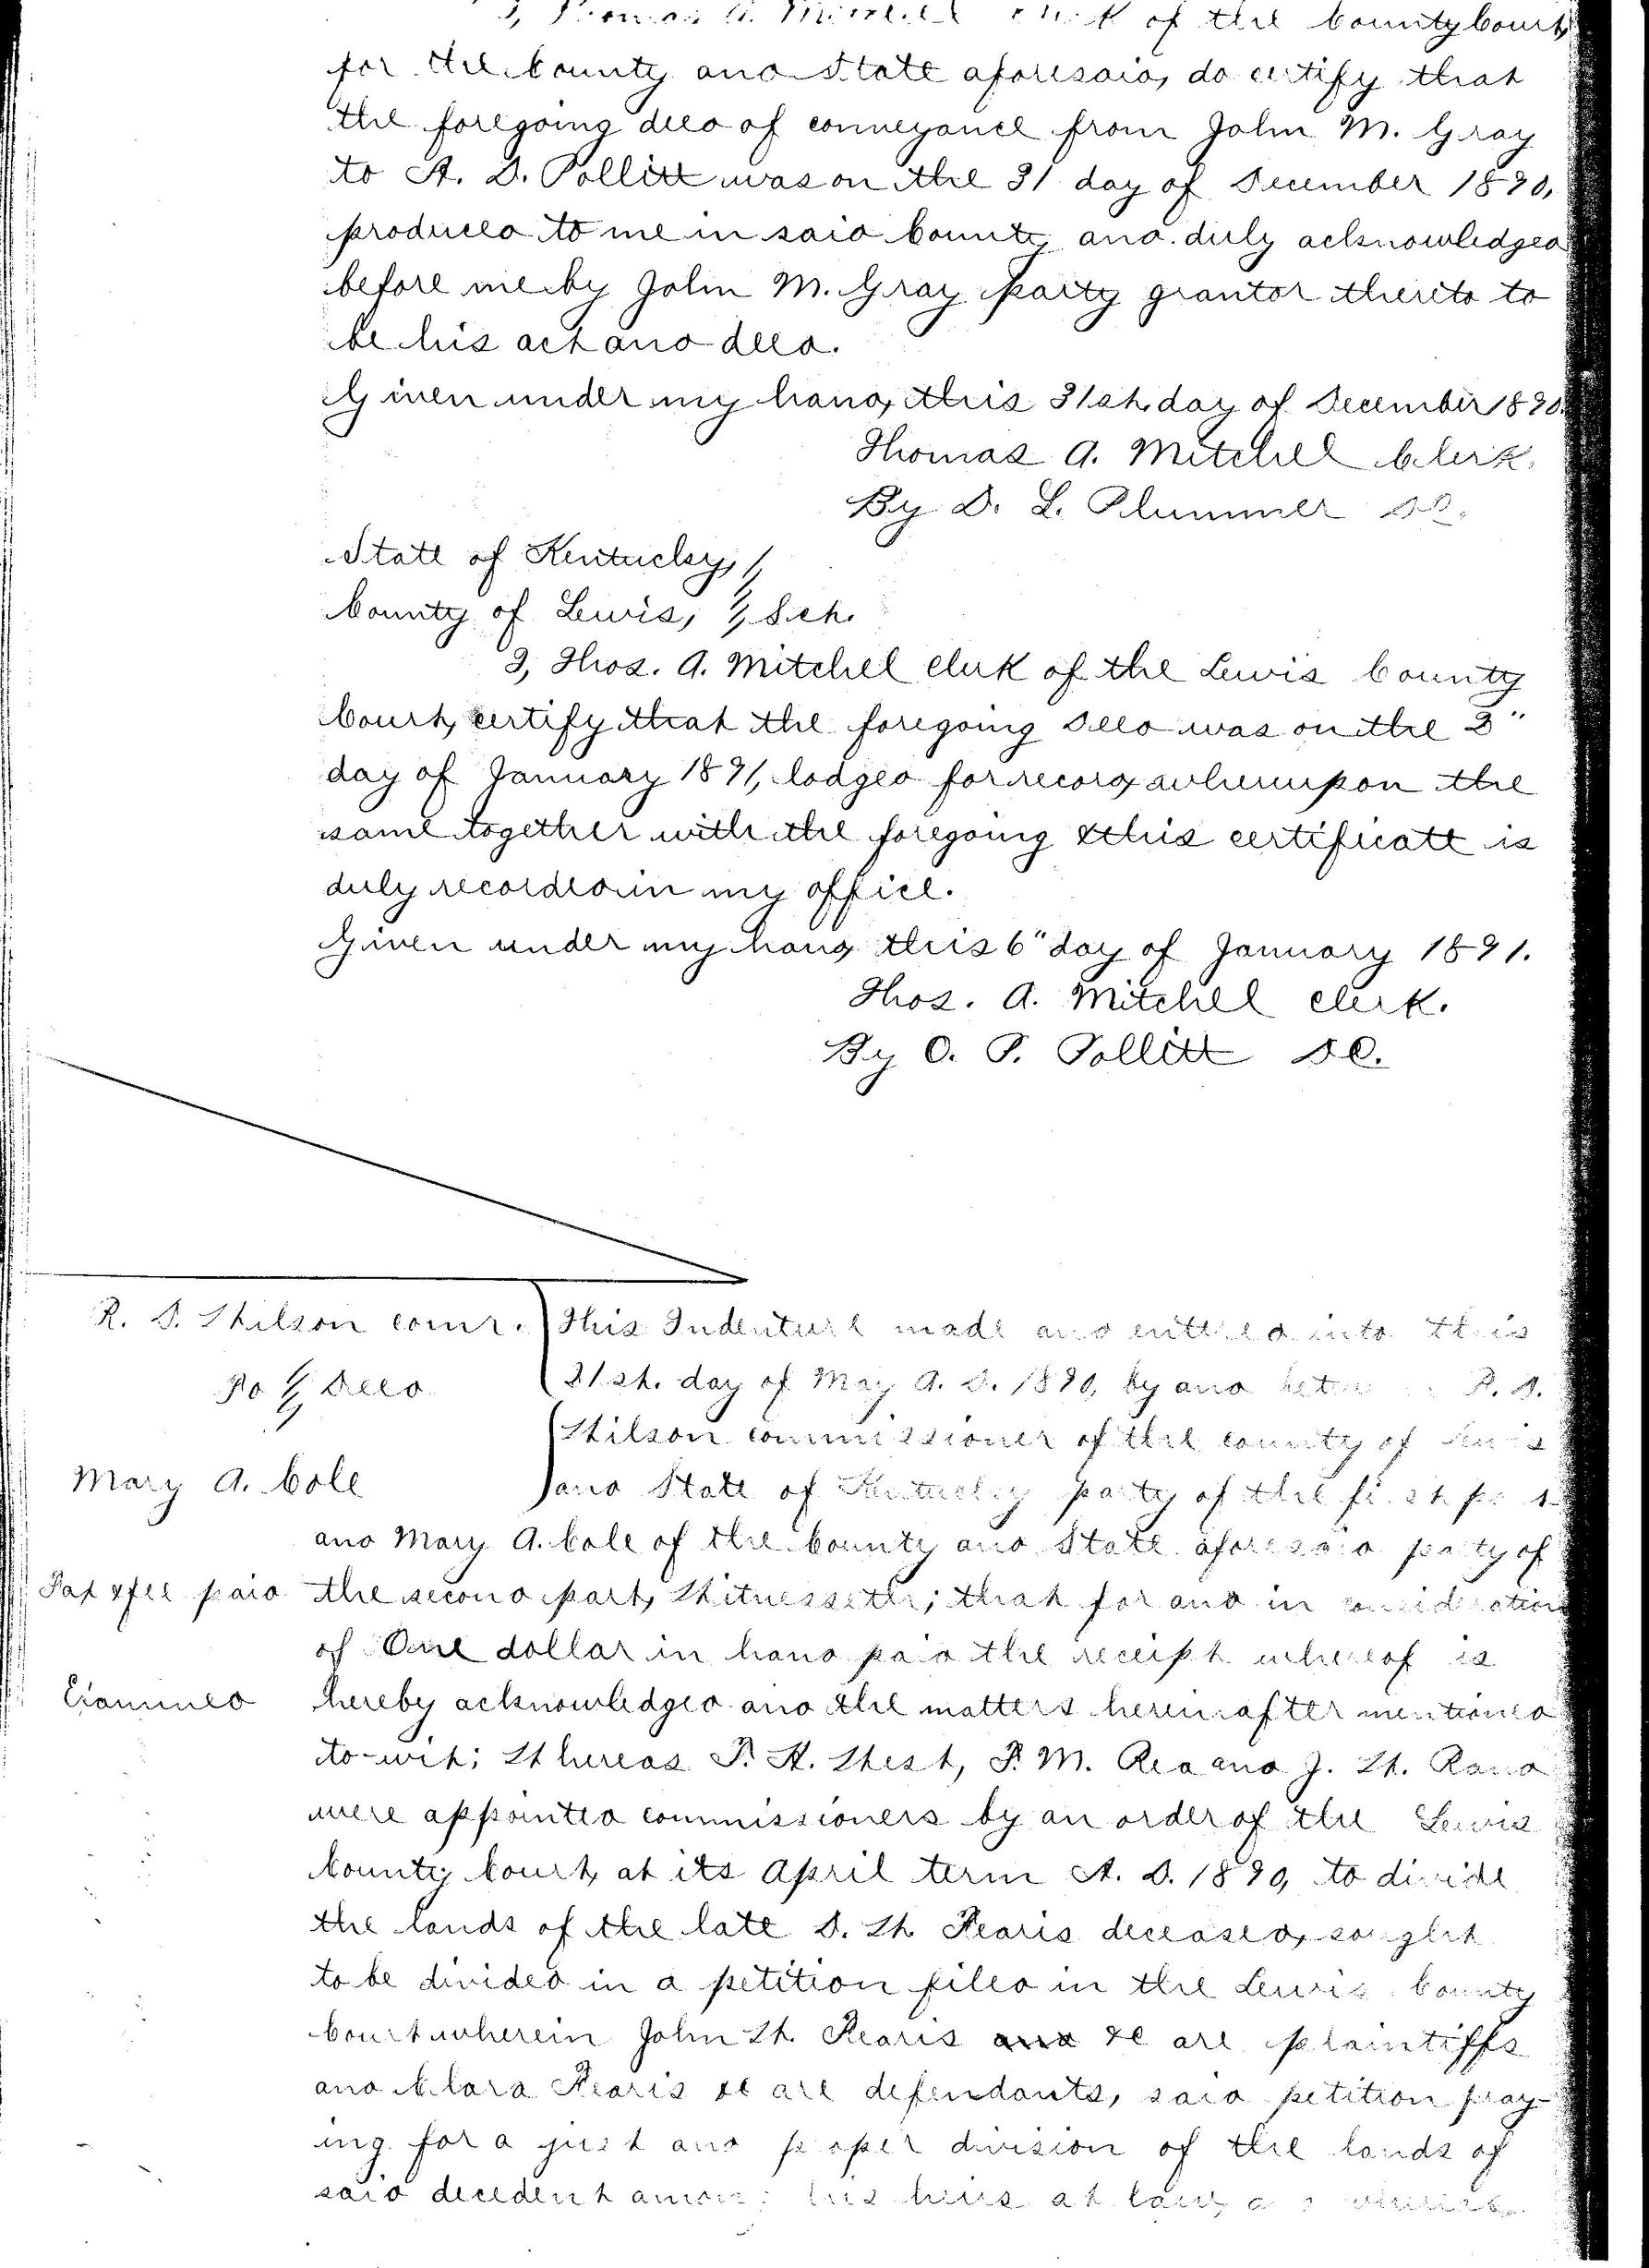 I, Thomas A. Mitchel clerk of the County Court
for the County and State aforesaid, do certify that
the foregoing deed of conveyance from John M. Gray
to A. D. Pollitt was on the 31 day of December 1890,
produced to me in said County and duly acknowledged
before me by John M. Gray party grantor thereto to
be his act and deed.
Given under my hand, this 31st. day of December 1890.
Thomas A. Mitchell Clerk.
By D. L. Plummer DC.
State of Kentucky,
County of Lewis, Sch.
I, Thos. A. Mitchel clerk of the Lewis County
Court, certify that the foregoing Deed was on the 3"
day of January 1891, lodged for record, whereupon the
same together with the foregoing & this certificate is
duly recorded in my office.
Given under my hand, this 6" day of January 1891.
Thos. A. Mitchel clerk.
By O. P. Pollitt DC.
R. D. Wilson comr. This Indenture made and entered into this
To Deed 21st. day of May A. D. 1890, by and between R. D.
Wilson commissioner of the county of Lewis
Mary A. Cole and State of Kentucky party of the first part
and Mary A. Cole of the County and State aforesaid party of
Tax & fee paid the second part, Witnesseth; that for and in consideration
of One dollar in hand paid the receipt whereof is
Examined hereby acknowledged and the matters hereinafter mentioned
to-wit; Whereas T. H. West, T. M. Rea and J. W. Rand
were appointed commissioners by an order of the Lewis
County Court, at its April term A. D. 1890, to divide
the lands of the late S. W. Fearis deceased, sought
to be divided in a petition filed in the Lewis County
Court wherein John W. Fearis &c are plaintiffs
and Clara Fearis &c are defendants, said petition pray-
ing for a just and proper division of the lands of
said decedent among his heirs at law,